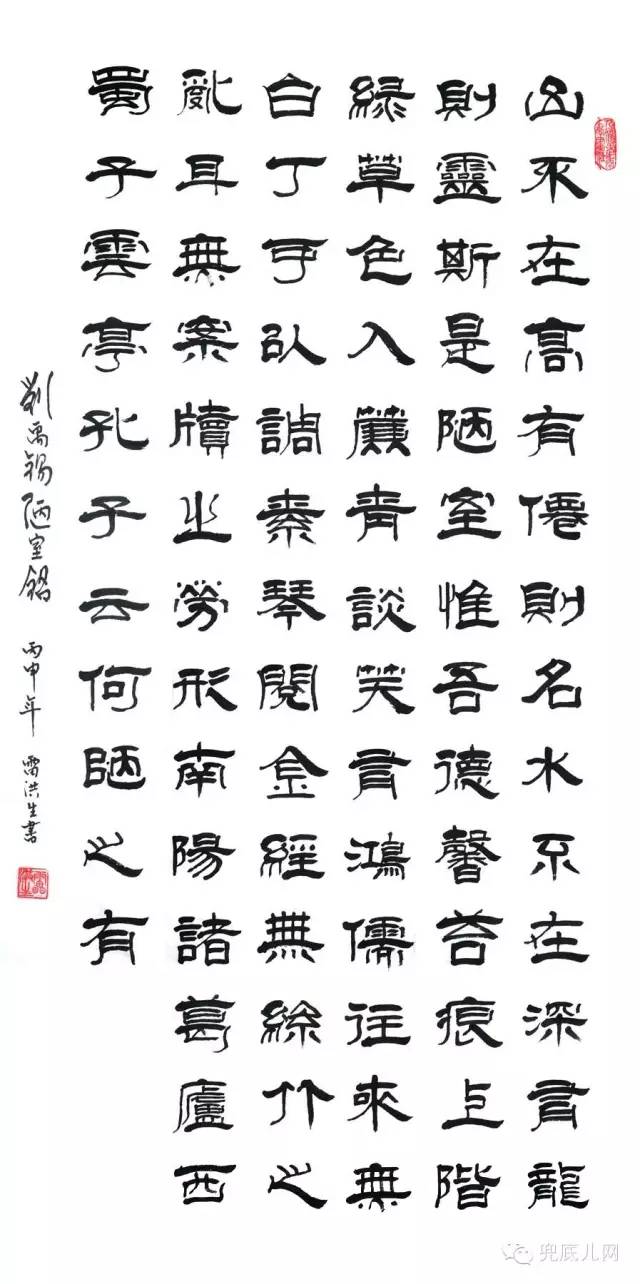 山不在高有僊則名水不在深有龍
則靈斯是陋室惟吾德馨苔痕上階
綠草色入簾青談笑有鴻儒往來無
白丁可以調素琴閱金經無絲竹之
亂耳無案牘之勞形南陽諸葛廬西
蜀子雲亭孔子云何陋之有
劉禹錫陋室銘 丙申年 雷洪生書
兜底儿网